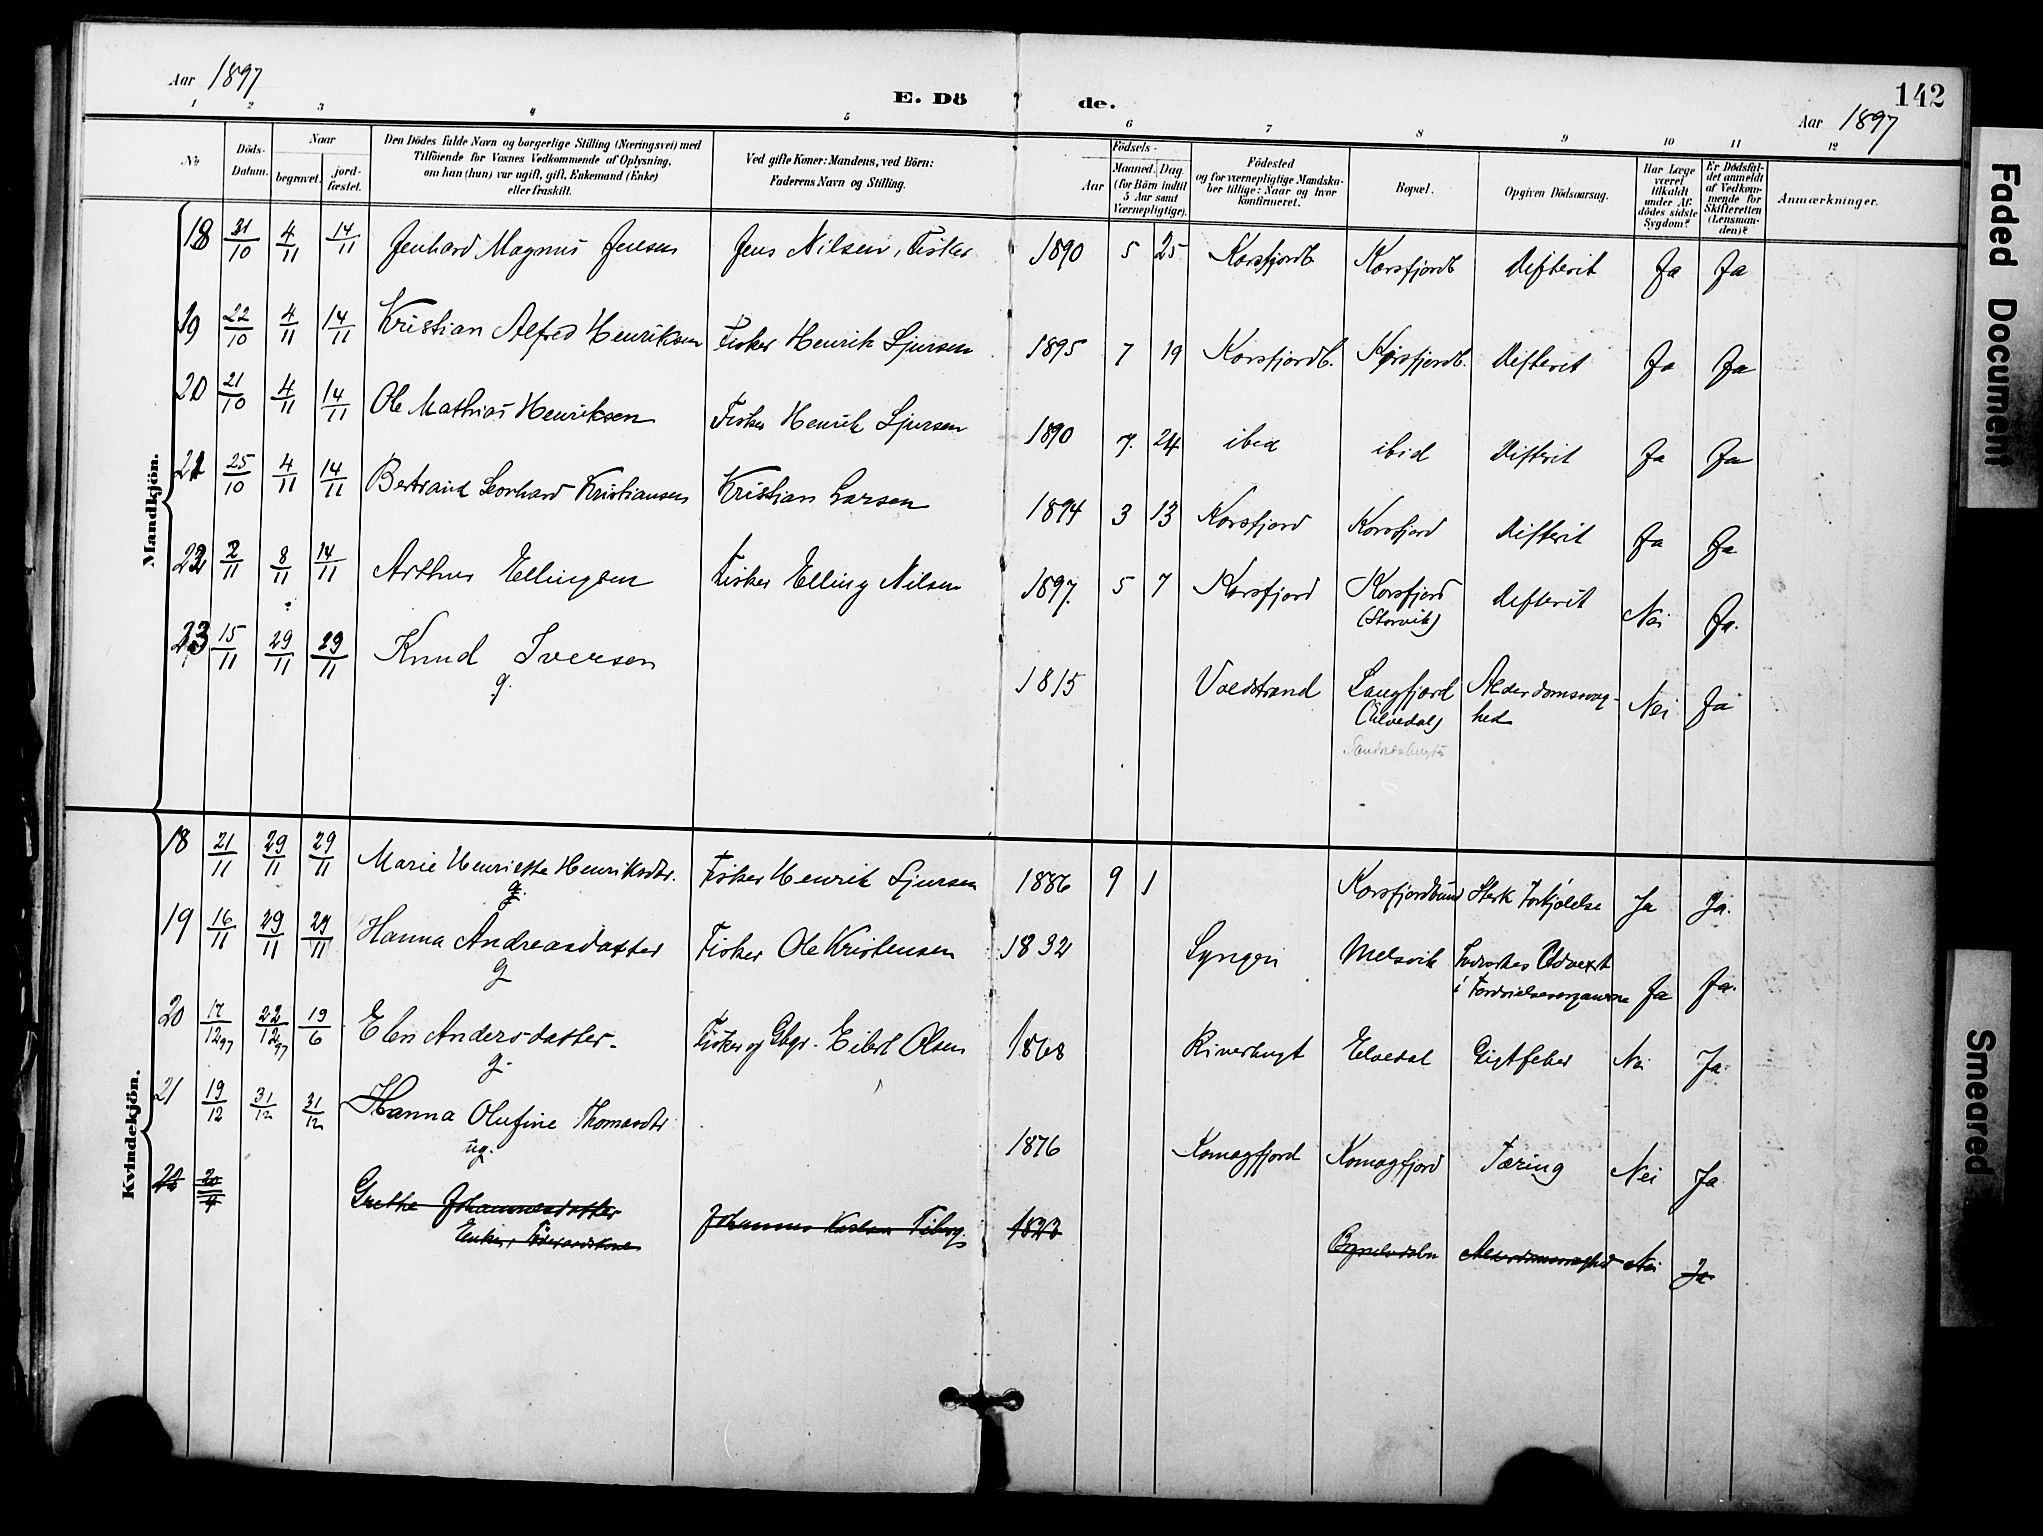 Aar 1897
E. Dö de.
142
Aar 1897
1 2 3 4 5 6 7 8 9 10 11 12
No
Döds-
Datum.
Naar
begravet.
jord-
fæstet.
Den Dödes fulde Navn og borgerlige Stilling (Næringsvei) med
Tilföiende for Voxnes Vedkommende af Oplysning,
om han (hun) var ugift, gift, Enkemand (Enke)
eller fraskilt.
Ved gifte Koner: Mandens, ved Börn:
Faderens Navn og Stilling.
Födsels-
Aar
Maaned. Dag
(for Börn indtil
5 Aar samt
Værnepligtige).
Födested
og for værnepligtige Mandska-
ber tillige: Naar og hvor
konfirmeret.
Bopæl.
Opgiven Dödsaarsag.
Har Læge
været
tilkaldt
under Af-
dödes sidste
Sygdom?
Er Dödsfal-
det anmeldt
af Vedkom-
mende for
Skifteretten
(Lensman-
den)?
Anmærkninger.
Mandkjön.
18 31/10 4/11 14/11 Jenhard Magnus Jensen Jens Nilsen, Fisker 1890 5 25 Korsfjordb. Korsfjordb Difterit Ja Ja
19 22/10 4/11 14/11 Kristian Alfred Henriksen Fisker Henrik Sjursen 1895 7 19 Korsfjordb. Korsfjordb. Difterit Ja Ja
20 21/10 4/11 14/11 Ole Mathias Henriksen Fisker Henrik Sjursen 1890 7. 24 ibid ibid Difterit Ja Ja
21 25/10 4/11 14/11 Bertrand Leonhard Kristiansen Kristian Larsen 1894 3 13 Korsfjord Korsfjord Difterit Ja Ja
22 2/11 8/11 14/11 Arthur Ellingsen Fisker Elling Nilsen 1897. 5 7 Korsfjord Korsfjord Difterit Nei Ja.
(Storvik)
23 15/11 29/11 29/11 Knud Iversen 1815 Voldstrand Langfjord Alderdomssvag- Nei Ja
g. (Elvedal) hed
Kvindekjön.
18 21/11 29/11 29/11 Marie Henriette Henriksdtr. Fisker Henrik Sjursen 1886 9 1 Korsfjordbund Sterk Forkjølelse Ja Ja.
19 16/11 29/11 29/11 Hanna Andreasdatter Fisker Ole Kristensen 1832 Lyngen Melsvik Udvext Ja Ja.
g i
20 17/12 97 22/12 97 19/6 Elen Andersdatter. Fisker og Gbgr. Eilert Olsen 1868 Riverbugt Elvedal Gigtfeber Nei Ja.
g.
21 19/12 31/12 31/12 Hanna Olufine Thomasdtr 1876 Komagfjord Komagfjord Tæring Nei Ja
ug.
Grethe Johannesdatter Johannes 1823 Alderdomssvaghed Nei Ja
Enke,
Faded Document
Smeared